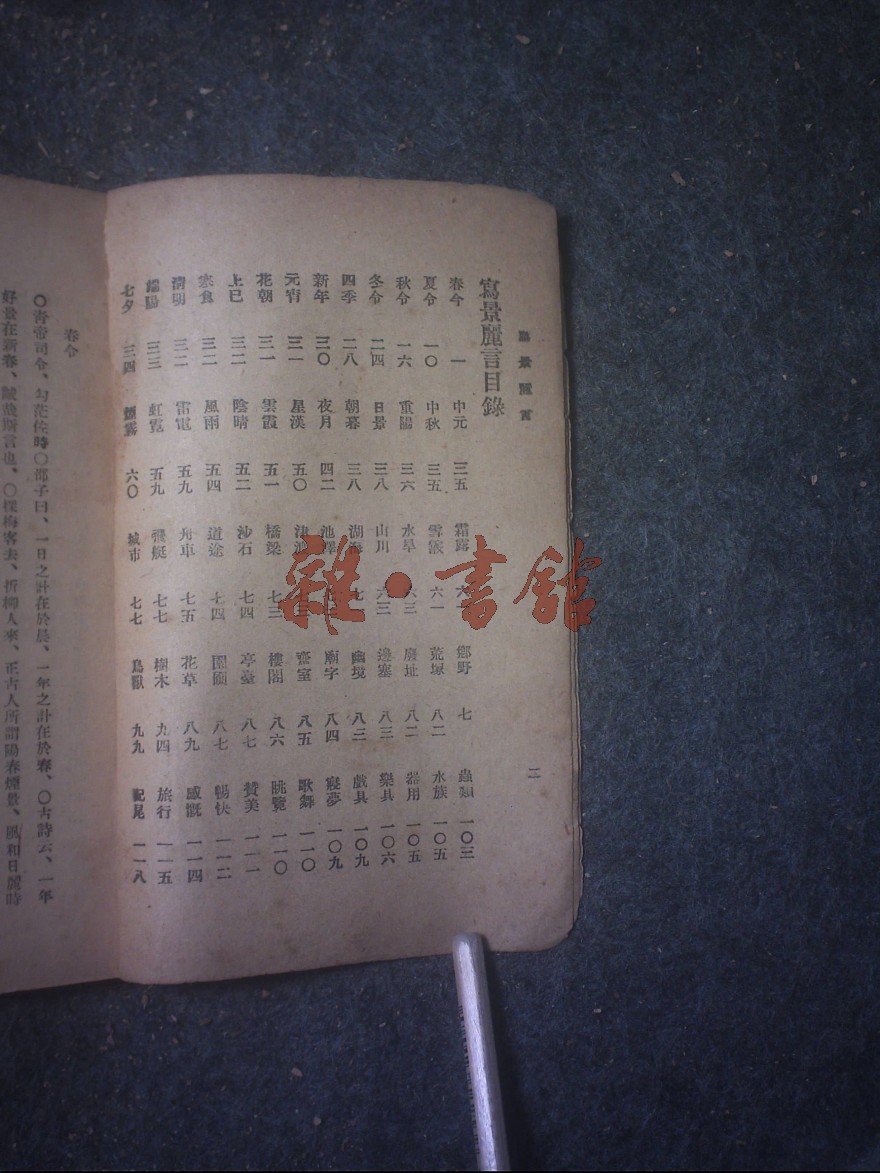 寫景麗言
二
寫景麗言目錄
春令 一 中元 三五 霜露 六 鄉野 七 蟲類 一〇三
夏令 一〇 中秋 三五 雪霰 六一 荒塚 八二 水族 一〇五
秋令 一六 重陽 三六 水旱 六三 廢址 八二 器用 一〇五
冬令 二四 日景 三八 山川 六三 邊塞 八三 樂具 一〇六
四季 二八 朝暮 三八 湖海 七 幽境 八三 戲具 一〇九
新年 三〇 夜月 四二 池澤 廟宇 八四 寢夢 一〇九
元宵 三一 星漢 五〇 津 齋室 八五 歌舞 一一〇
花朝 三一 雲霞 五一 橋梁 七三 樓閣 八六 眺覽 一一〇
上巳 三二 陰晴 五二 沙石 七四 亭臺 八七 贊美 一一一
寒食 三二 風雨 五四 道途 七四 園圃 八七 暢快 一一二
清明 三二 雷電 五九 舟車 七五 花草 八九 感慨 一一四
端陽 三三 虹霓 五九 飛艇 七七 樹木 九四 旅行 一一五
七夕 三四 煙霧 六〇 城市 七七 鳥獸 九九 尾 一一八
春令
〇青帝司令、勾茫佐時〇邵子曰、一日之計在於晨、一年之計在於春、〇古詩云、一年
好景在新春、誠哉斯言也、〇探梅客去、折柳人來、正古人所謂陽春煙景、風和日麗時
雜·書館